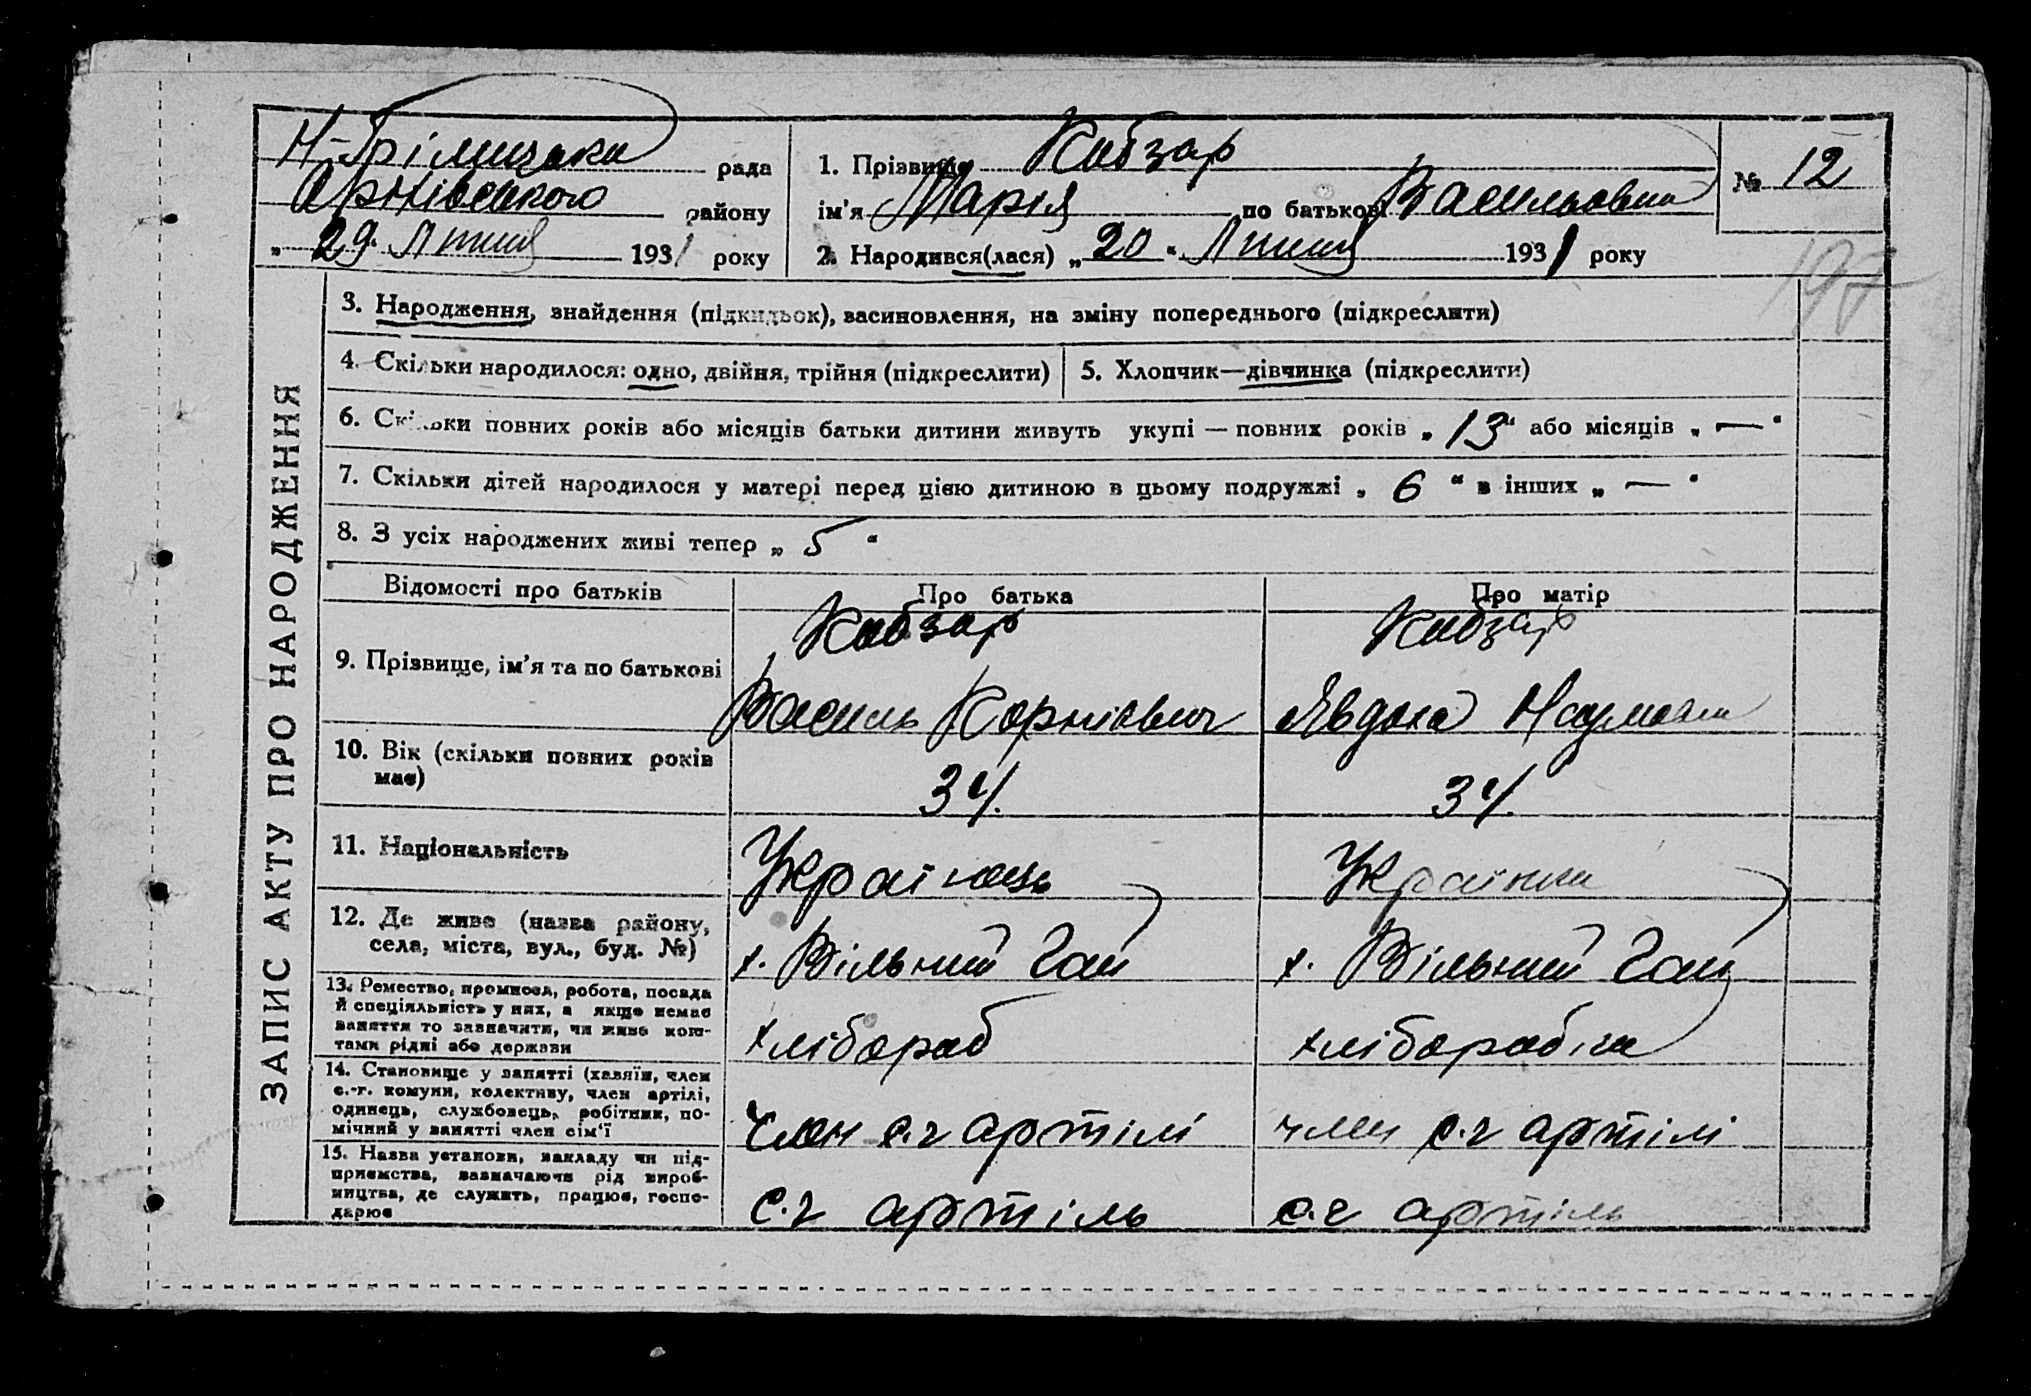 Н-Грімицька рада
району
„ 29 " Липня 1931 року
1. Прізвище Кобзар
ім'я Марія по батькові Васильовна
№ 12
2. Народився(лася) „ 20 " Липня 1931 року
197
ЗАПИС АКТУ ПРО НАРОДЖЕННЯ
3. Народження, знайдення (підкидьок), васиновлення, на зміну попереднього (підкреслити)
4. Скільки народилося: одно, двійня, трійня (підкреслити)
5. Хлопчик—дівчинка (підкреслити)
6. Скільки повних років або місяців батьки дитини живуть укупі — повних років „ 13 " або місяців „ — "
7. Скільки дітей народилося у матері перед цією дитиною в цьому подружжі „ 6 " в інших „ — "
8. З усіх народжених живі тепер „ 5 "
Відомості про батьків
Про батька
Про матір
9. Прізвище, ім'я та по батькові
Кобзар
Василь Корнієвич
Кобзар
Явдока Наумовна
10. Вік (скільки повних років
має)
34.
34.
11. Національність
Українець
Українка
12. Де живе (назва району,
села, міста, вул., буд. №)
х. Вільний Гай
х. Вільний Гай
13. Ремество, промисел, робота, посада
й спеціяльність у них, а якщо немає
заняття то зазначити, чи живе кош-
тами рідні або держави
хлібороб
хліборобка
14. Становище у занятті (хазяїн, член
с.-г. комуни, колективу, член артілі,
одинець, службовець, робітник, по-
мічний у занятті член сім'ї
член с.г артілі
член с.г артілі
15. Назва установи, закладу чи під-
приємства, зазначаючи рід вироб-
ництва, де служить, працює, госпо-
дарює
с.г артіль
с.г артіль